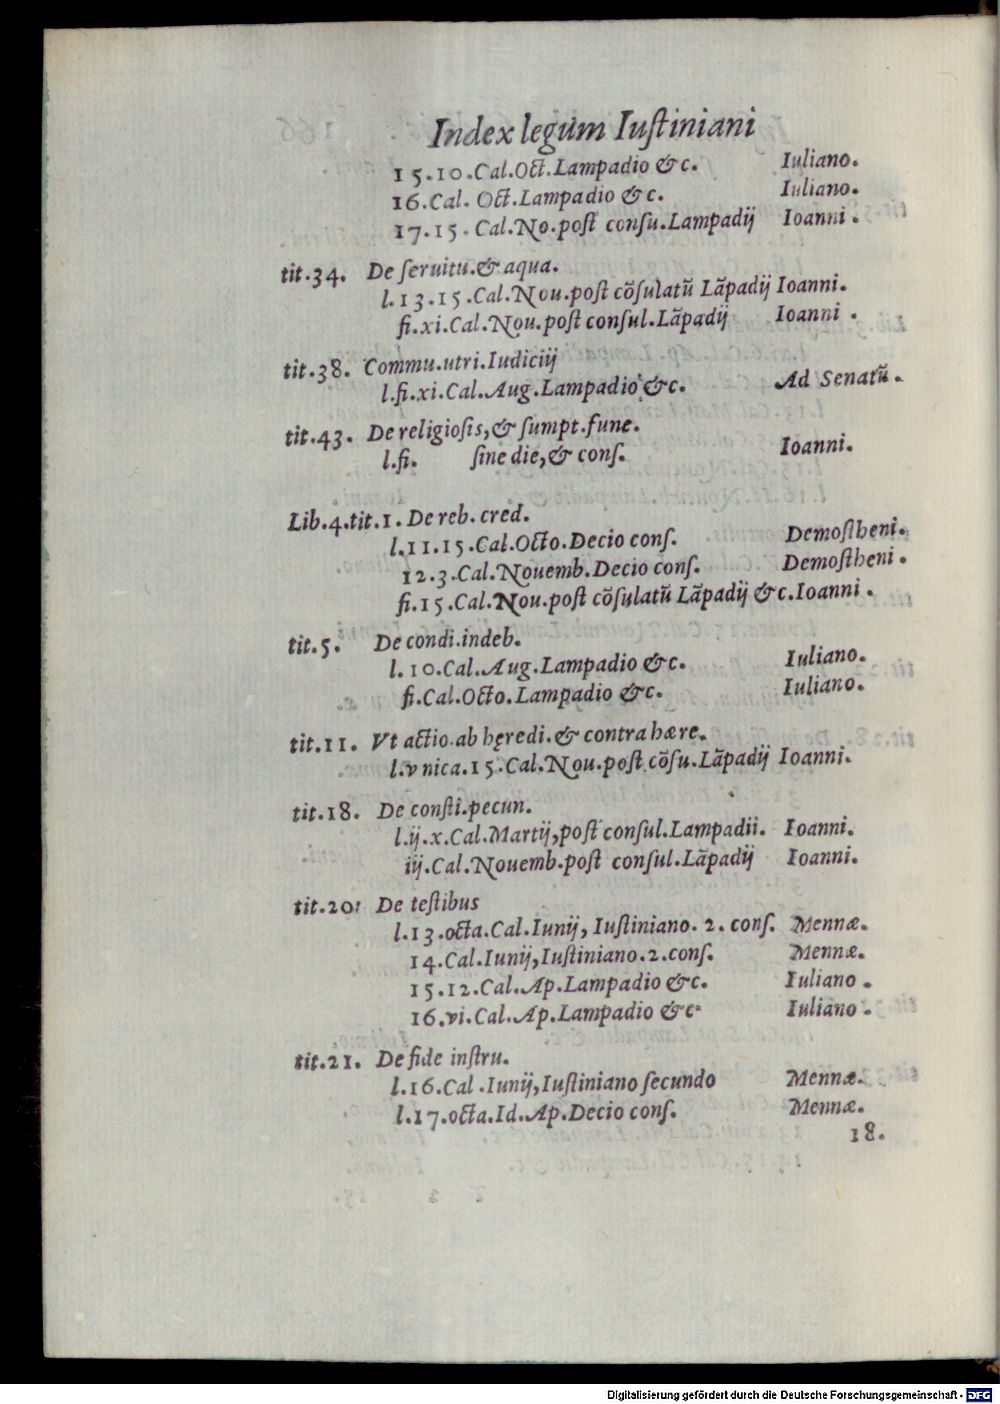 Index legum Iustiniani
15.10.Cal.Oct.Lampadio &c. Iuliano.
16.Cal. Oct.Lampadio & c. Iuliano.
17.15. Cal.No.post consu.Lampadij Ioanni.
tit.34. De seruitu.& aqua.
l.13.15.Cal.Nou.post cõsulatũ Lãpadij Ioanni.
fi.xi.Cal.Nou.post consul.Lãpadij Ioanni .
tit.38. Commu.utri.Iudicij
l.fi.xi.Cal.Aug.Lampadio &c. Ad Senatũ.
tit.43. De religiosis,& sumpt.fune.
l.fi. sine die,& cons. Ioanni.
Lib.4.tit.1. De reb. cred.
l.11.15.Cal.Octo.Decio cons. Demostheni.
12.3.Cal.Nouemb.Decio cons. Demostheni.
fi.15.Cal.Nou.post cõsulatũ Lãpadij & c.Ioanni .
tit.5. De condi.indeb.
l.10.Cal.Aug.Lampadio &c. Iuliano.
fi.Cal.Octo.Lampadio &c. Iuliano.
tit.11. Vt actio.ab hęredi.& contra hære.
l.vnica.15.Cal.Nou.post cõsu.Lãpadij Ioanni.
tit.18. De consti.pecun.
l.ij.x.Cal.Martij,post consul.Lampadii. Ioanni.
iij.Cal.Nouemb.post consul.Lãpadij Ioanni.
tit.20: De testibus
l.13.octa.Cal.Iunij, Iustiniano. 2. cons. Mennæ.
14.Cal.Iunij,Iustiniano.2.cons. Mennæ.
15.12.Cal.Ap.Lampadio &c. Iuliano .
16.vi.Cal.Ap.Lampadio &c. Iuliano .
tit.21. De fide instru.
l.16.Cal .Iunij,Iustiniano secundo Mennæ.
l.17.octa.Id.Ap.Decio cons. Mennæ.
18.
Digitalisierung gefördert durch die Deutsche Forschungsgemeinschaft - DFG